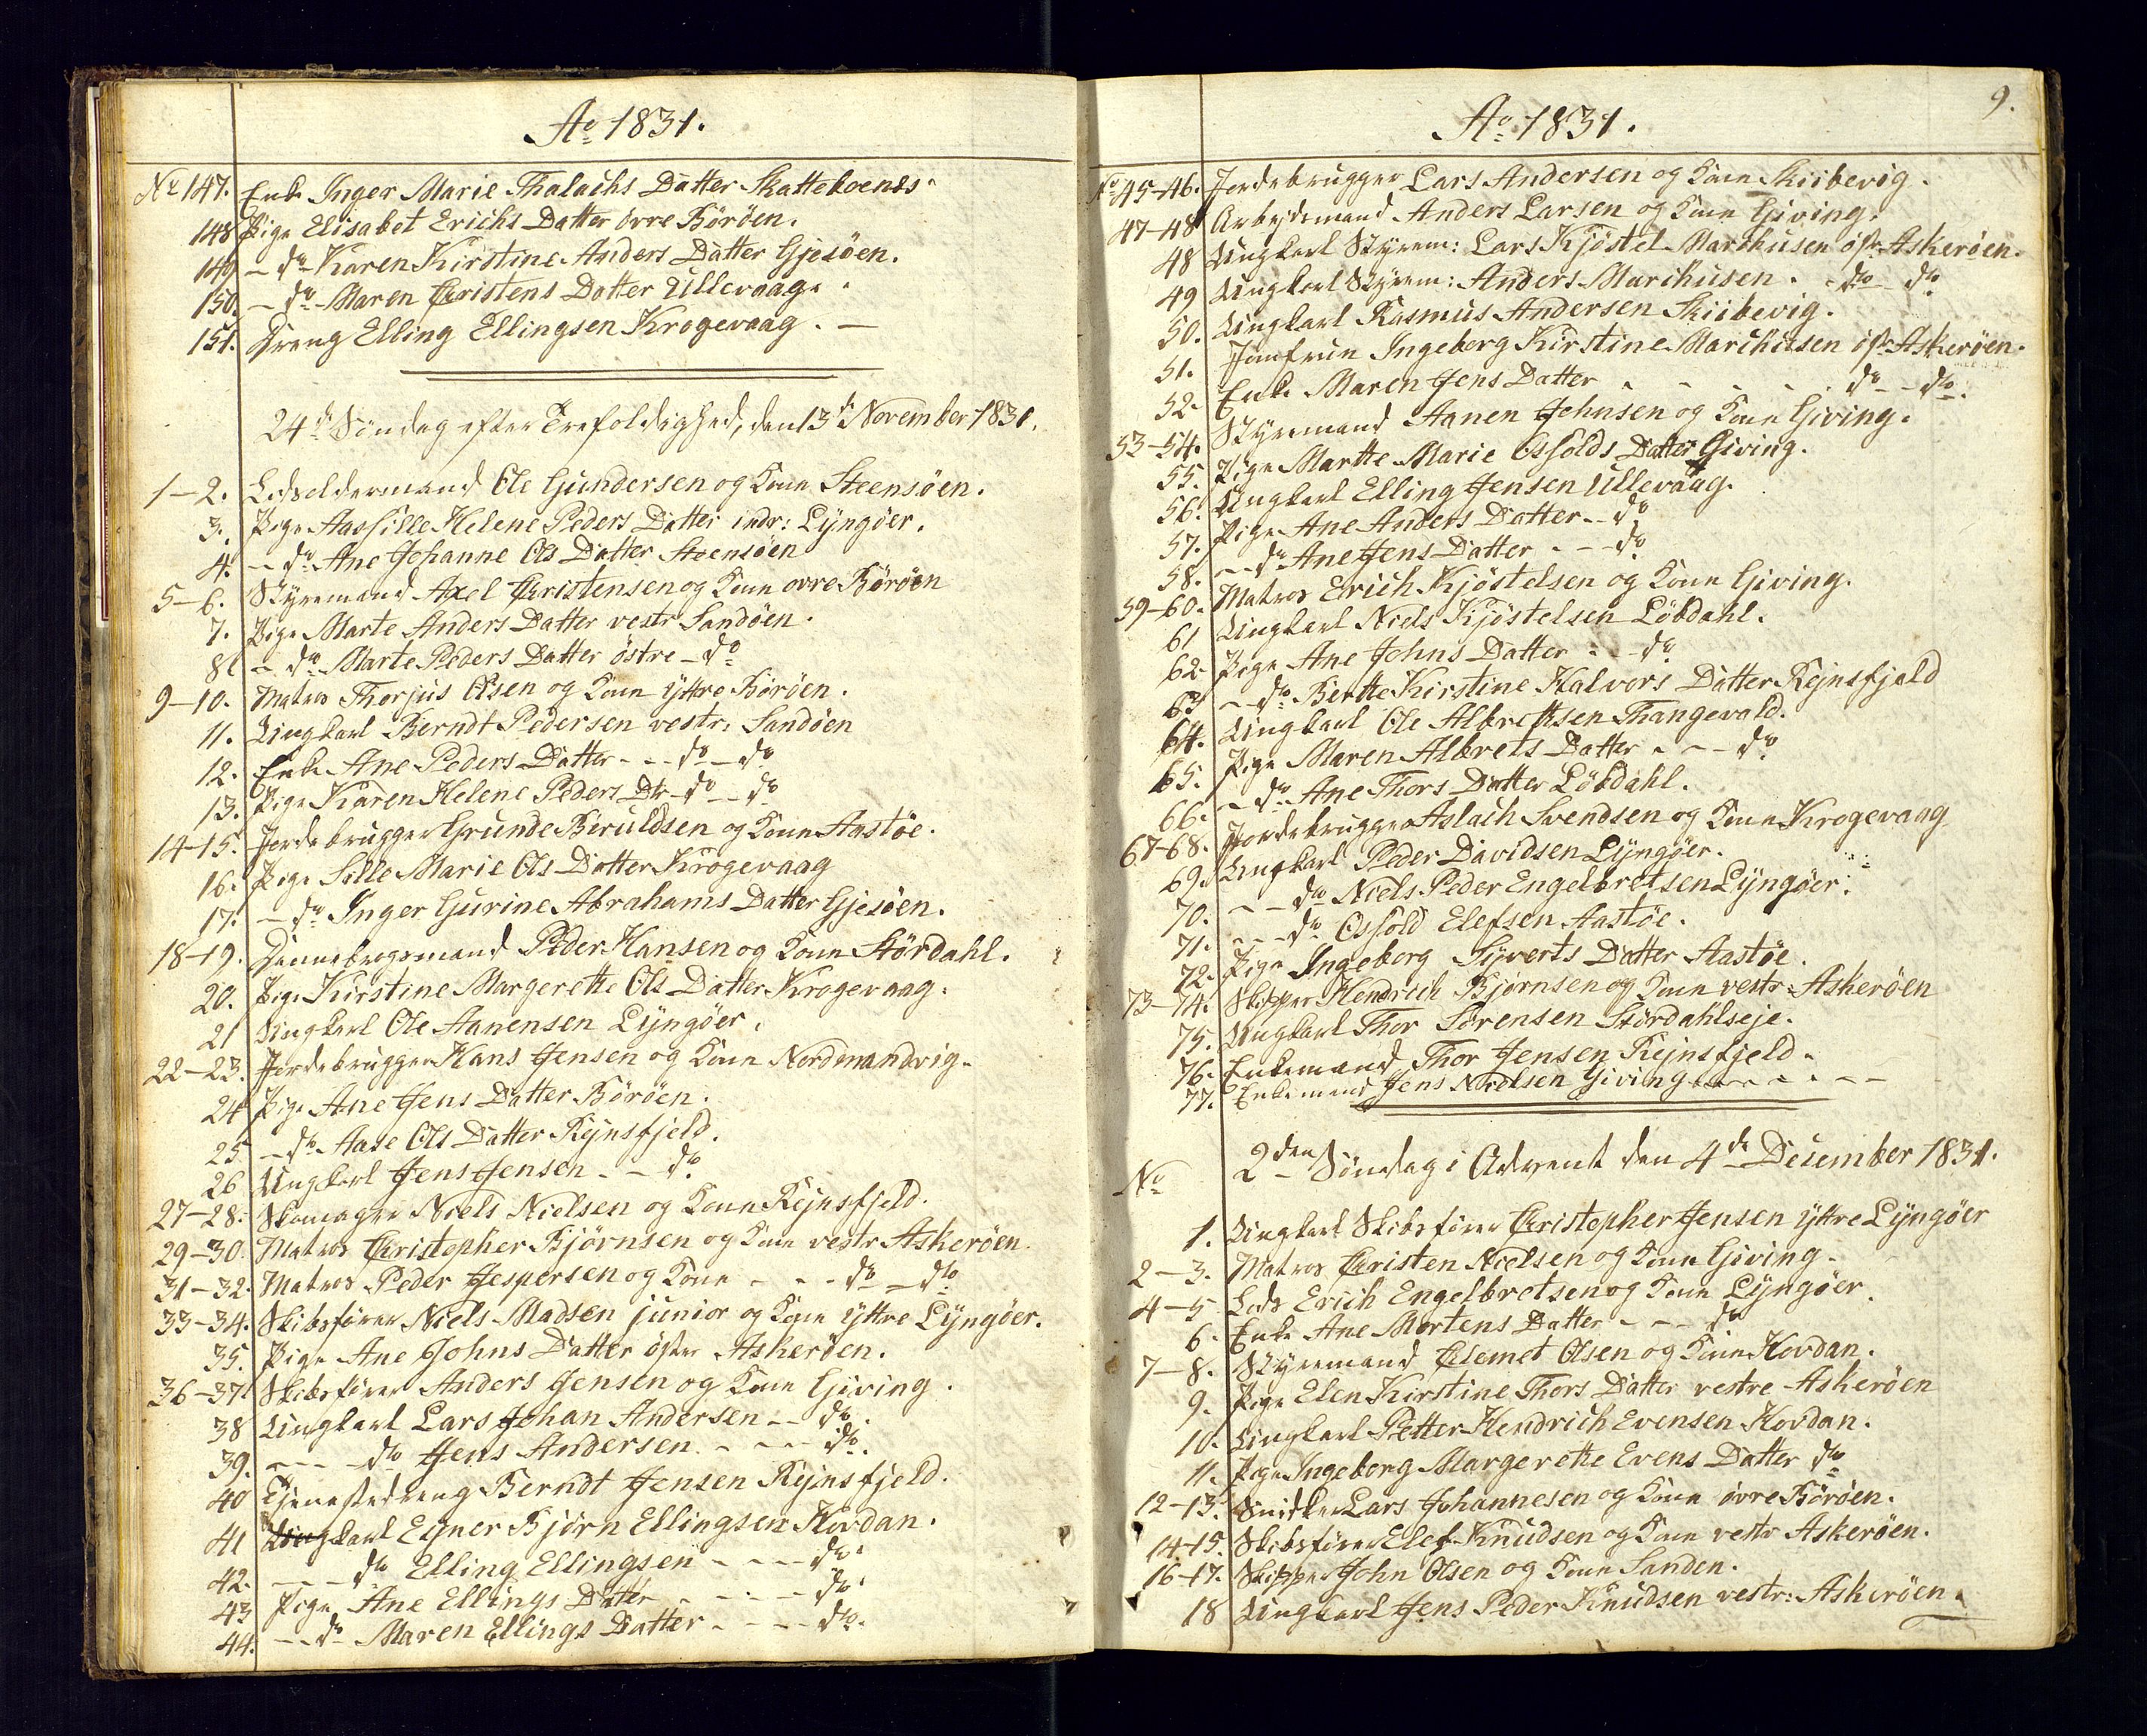 Ao 1831.
No 147. Enke Inger Marie Thalachs Datter Skatteboenes
148 Pige Elisabet Erichs Datter övre Böröen.
149 – do Karen Kirstine Anders Datter Gjesöen.
150. – do Maren Christens Datter Ullevaag.
151. Dreng Elling Ellingsen Krogevaag. –
24de Söndag efter Trefoldighed, den 13de November 1831.
1–2. Lodsoldermand Ole Gundersen og Kone Steensöen.
3. Pige Aassille Helene Peders Datter indr: Lyngöer.
4. – do Ane Johanne Ols Datter Steensöen
5–6. Styremand Axel Christensen og Kone ovre Böröen
7. Pige Marte Anders Datter vestr Sandöen.
8 – do Marte Peders Datter östre – do
9–10. Matros Thorjus Olsen og Kone yttre Böröen.
11. Ungkarl Berndt Pedersen vestr: Sandöen
12. Enke Ane Peders Datter - - do – do
13. Pige Karen Helene Peders Dtr – do – do
14–15. Jordebrugger Grunde Biruldsen og Kone Aastöe.
16. Pige Sille Marie Ols Datter Krogevaag
17. – do Inger Gurine Abrahams Datter Gjesöen.
18–19. Dannebrogsmand Peder Hansen og Kone Stördahl.
20. Pige Kirstine Margerette Ols Datter Krogevaag.
21 Ungkarl Ole Aanensen Lyngöer.
22–23. Jordebrugger Hans Jensen og Kone Nordmandvig.
24 Pige Ane Jens Datter Böröen.
25 – do Aase Ols Datter Rejnsfjeld.
26 Ungkarl Jens Jensen - – do
27–28. Skomager Niels Nielsen og Kone Rejnsfjeld.
29–30. Matros Christopher Bjørnsen og Kone vestr Askeröen
31–32. Matros Peder Jespersen og Kone - - - do – do
33–34. Skibsförer Niels Madsen junior og Kone yttre Lyngöer.
35. Pige Ane Johns Datter öster Askeröen.
36–37. Skibsförer Anders Jensen og Kone Giving.
38 Ungkarl Lars Johan Andersen - - do
39. - - - do Jens Andersen - - - do.
40 Tjenestedreng Berndt Jensen Rejnsfjeld.
41 Ungkarl Ejner Bjørn Ellingsen Hovdan.
42. - - - do Elling Ellingsen - - - do
43 Pige Ane Ellings Datter - - - - do
44. - - do Maren Ellings Datter - - - - do.
9.
Ao 1831.
No 45–46. Jordebrugger Lars Andersen og Kone Skiibevig.
47–48 Arbejdsmand Anders Larsen og Kone Giving.
48 Ungkarl Styrem: Lars Kjöstel Marchusen östr Askeröen.
49 Ungkarl Styrem: Anders Marchusen. - do - do
50. Ungkarl Rasmus Andersen Skiibevig.
51. Jomfrue Ingeborg Kirstine Marchusen östr Askeröen.
52. Enke Maren Jens Datter - - - - - do - do.
53–54. Styremand Aanen Johnsen og Kone Giving.
55. Pige Martte Marie Ossolds Datter Giving.
56. Ungkarl Elling Jensen Ullevaag.
57. Pige Ane Anders Datter - - do
58. - - do Ane Jens Datter - - - do
59–60. Matros Erich Kjöstelsen og Kone Giving.
61 Ungkarl Niels Kjöstelsen Löbdahl.
62. Pige Ane Johns Datter - - do
63 - - do Bertte Kirstine Halvors Datter Rejnsfjeld
64. Ungkarl Ole Albretsen Thangevald.
65. Pige Maren Albrets Datter - - - do
66. - do Ane Thors Datter Löbdahl.
67–68. Jordebrugger Aslach Svendsen og Kone Krogevaag
69. Ungkarl Peder Davidsen Lyngöer.
70. - - do Niels Peder Engelbretsen Lyngöer.
71. - - - do Ossold Elefsen Aastöe.
72. Pige Ingeborg Syverts Datter Aastöe.
73–74. Skipper Hendrich Bjørnsen og Kone vestr Askeröen
75. Ungkarl Thor Sörensen Stördahlseje.
76. Enkemand Thor Jensen Rejnsfjeld.
77. Enkemand Jens Nielsen Giving - - - - - - -
No 2den Söndag i Advent den 4de December 1831.
1. Ungkarl Skibsförer Christopher Jensen yttre Lyngöer
2–3. Matros Christen Nielsen og Kone Giving.
4–5 Lods Erich Engelbretsen og Kone Lyngöer.
6. Enke Ane Mortens Datter - - - do
7–8. Styremand Clemet Olsen og Kone Hovdan.
9. Pige Elen Kirstine Thors Datter vestre Askeröen
10. Ungkarl Petter Hendrich Evensen Hovdan.
11. Pige Ingeborg Margerette Evens Datter do
12–13. Snidker Lars Johannesen og Kone övre Böröen.
14–15. Skibsförer Elef Knudsen og Kone vestr Askeröen.
16–17. Skipper John Olsen og Kone Sanden.
18 Ungkarl Jens Peder Knudsen vestr: Askeröen.